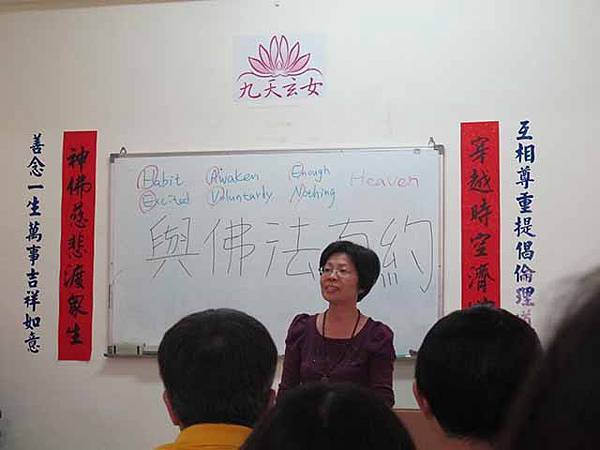 九天玄女
Habit Awaken Enough Heaven
Excited Voluntarly Nothing
與佛法有約
互相尊重提倡倫理道
穿越時空濟
神佛慈悲渡眾生
善念一生萬事吉祥如意